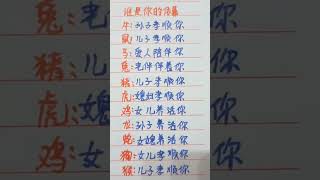 谁是你的依靠
牛:孙子孝顺你
鼠:儿子孝顺你
马:爱人陪伴你
兔:老伴伴着你
猪:儿子孝顺你
虎:媳妇孝顺你
鸡:女儿养活你
龙:孙子养活你
蛇:女婿养活你
狗:女儿孝顺你
猴:儿子孝顺你